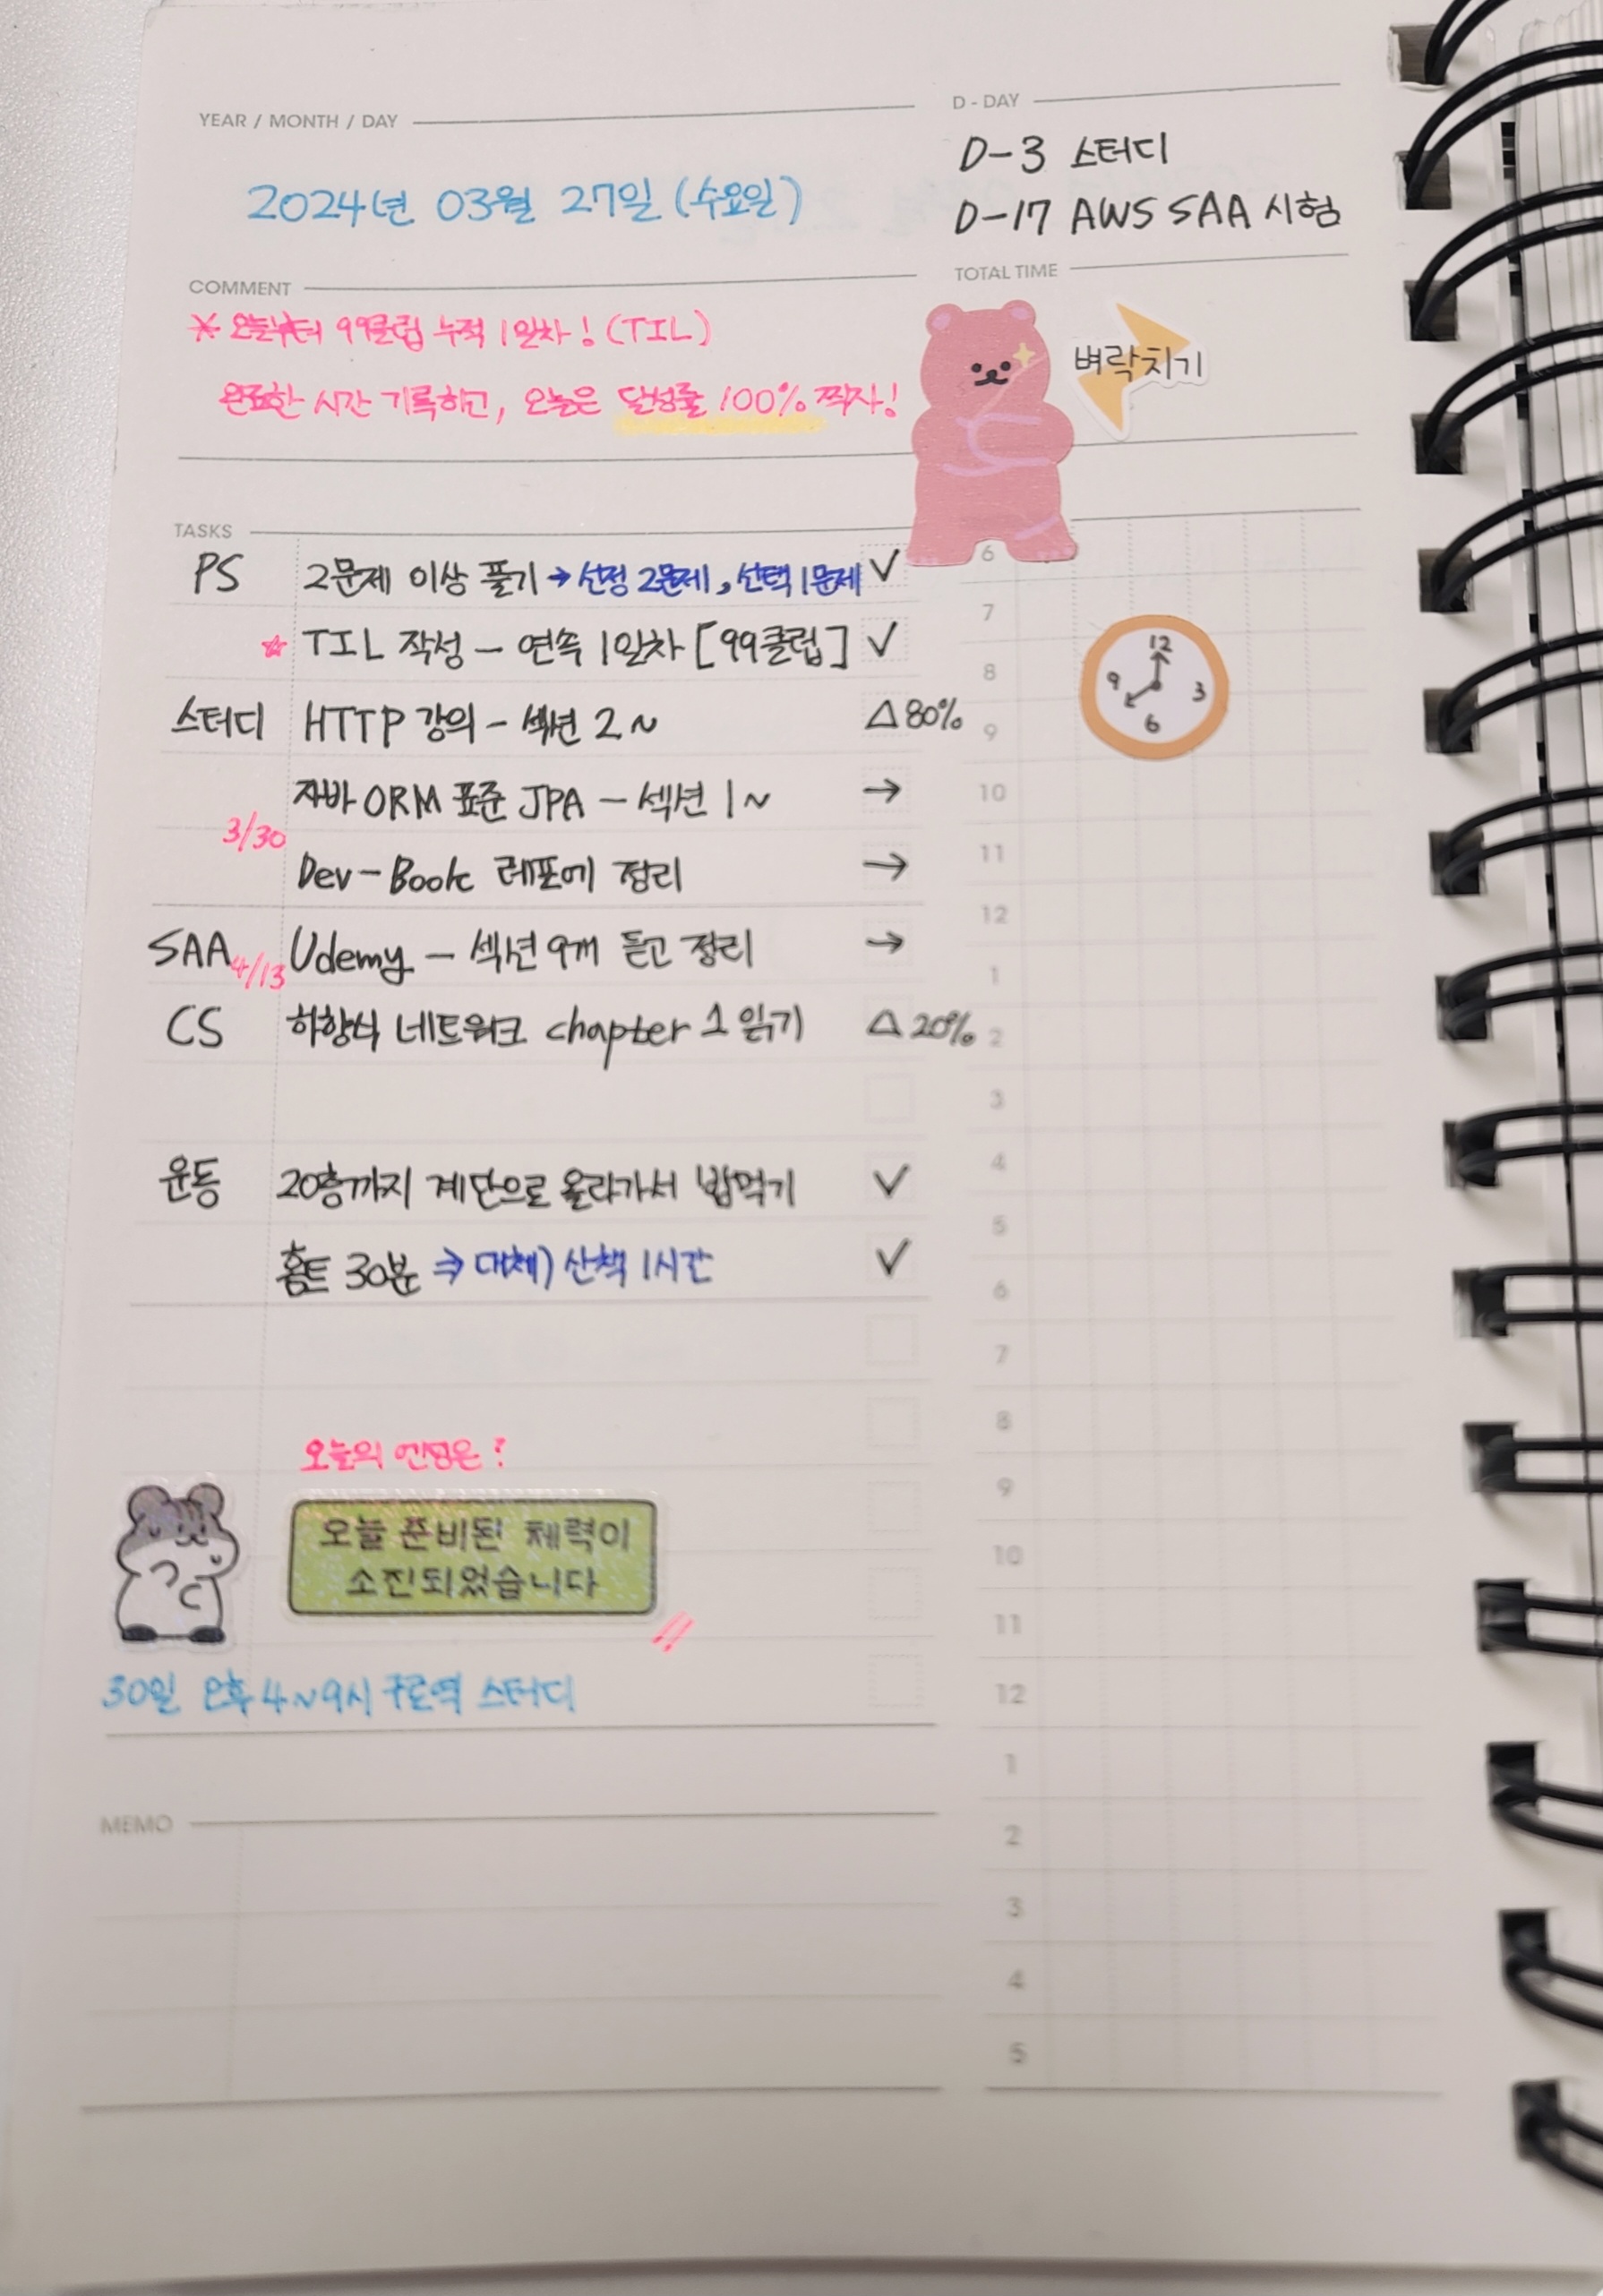 YEAR / MONTH / DAY
2024년 03월 27일 (수요일)
D - DAY
D-3 스터디
D-17 AWS SAA 시험
COMMENT
※ 오늘부터 99클럽 누적 1일차! (TIL)
완료한 시간 기록하고, 오늘은 달성률 100% 찍자!
TOTAL TIME
벼락치기
TASKS
PS 2문제 이상 풀기 → 선정 2문제, 선택 1문제 ✓
☆ TIL 작성 - 연속 1일차 [99클럽] ✓
스터디 HTTP 강의 - 섹션 2 ~ △ 80%
자바 ORM 표준 JPA - 섹션 1 ~ →
3/30
Dev-Book 레포에 정리 →
SAA 4/13 Udemy - 섹션 9개 듣고 정리 →
CS 하향식 네트워크 chapter 1 읽기 △ 20%
운동 20층까지 계단으로 올라가서 밥먹기 ✓
홈트 30분 ⇒ 대체) 산책 1시간 ✓
오늘의 엔딩은?
오늘 준비된 체력이
소진되었습니다
!!
30일 오후 4~9시 구로역 스터디
MEMO
6
7
8
9
10
11
12
1
2
3
4
5
6
7
8
9
10
11
12
1
2
3
4
5
12
9
3
6